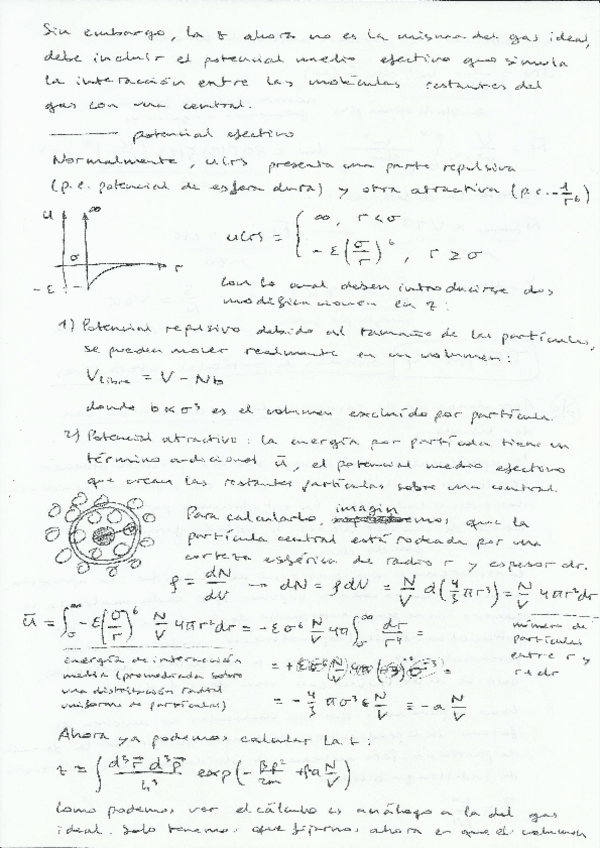 Sin embargo, la z ahora no es la misma del gas ideal,
debe incluir el potencial medio efectivo que simula
la interacción entre las moléculas restantes del
gas con una central.
potencial efectivo
Normalmente, u(r) presenta una parte repulsiva
(p.e. potencial de esfera dura) y otra atractiva (p.e. -1/r^6)
u ∞
σ r
-ε
u(r) = { ∞, r < σ
-ε(σ/r)^6, r ≥ σ
Con lo cual deben introducirse dos
modificaciones en z:
1) Potencial repulsivo debido al tamaño de las partículas,
se pueden mover realmente en un volumen:
V libre = V - Nb
donde b ∝ σ^3 es el volumen excluido por partícula.
2) Potencial atractivo: la energía por partícula tiene un
término adicional ū, el potencial medio efectivo
que crean las restantes partículas sobre una central.
Para calcularlo, imaginemos que la
partícula central está rodeada por una
corteza esférica de radio r y espesor dr.
ρ = dN/dV → dN = ρdV = N/V d(4/3 πr^3) = N/V 4πr^2dr
número de
partículas
entre r y
r+dr
ū = ∫_σ^∞ -ε(σ/r)^6 N/V 4πr^2dr = -εσ^6 N/V 4π ∫_σ^∞ dr/r^4 =
energía de interacción
media (promediada sobre
una distribución radial
uniforme de partículas)
= -4/3 πσ^3 ε N/V ≡ -a N/V
Ahora ya podemos calcular la z:
z = ∫ d^3r⃗ d^3p⃗/h^3 exp(-βp^2/2m + βa N/V)
Como podemos ver el cálculo es análogo a la del gas
ideal. Solo tenemos que fijarnos ahora en que el volumen